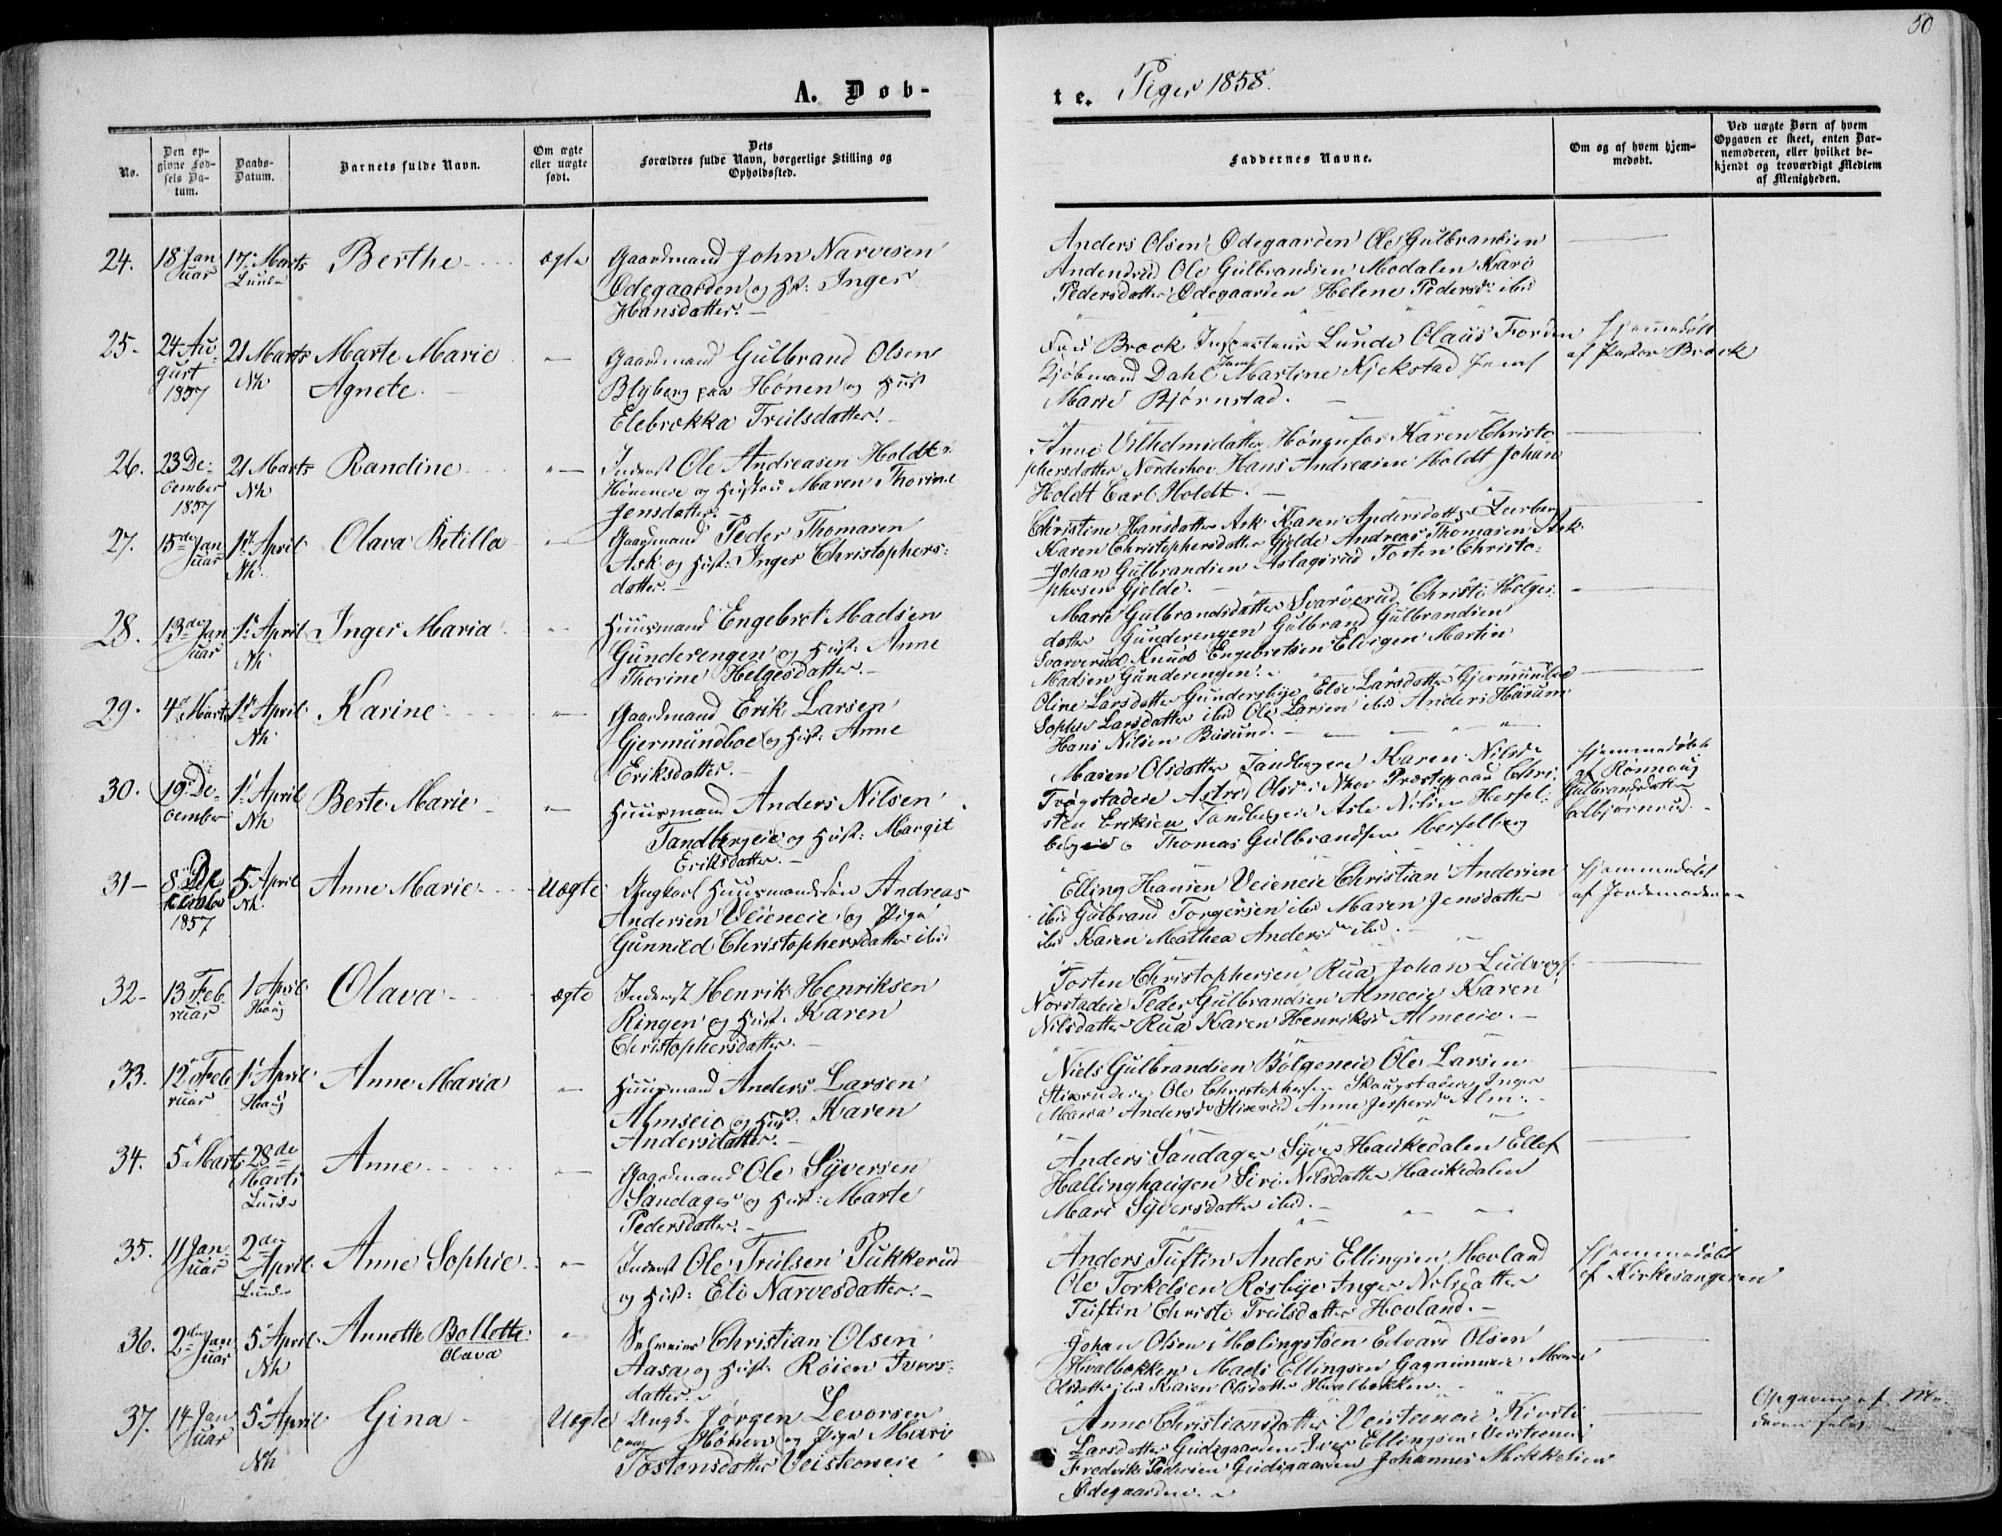 50
A. Døb-
te. Piger 1858.
No.
Den op-
givne Fød-
sels Da-
tum.
Daabs-
Datum.
Barnets fulde Navn.
Om ægte
eller uægte
født.
Dets
Forældres fulde Navn, borgerlige Stilling og
Opholdssted.
Faddernes Navne.
Om og af hvem hjem-
medøbt.
Ved uægte Børn af hvem
Opgaven er skeet, enten Bar-
nemoderen, eller hvilket be-
kjendt og troværdigt Medlem
af Menigheden.
24. 18 Jan 17. Marts Berthe ægte Gaardmand John Narvesen
uar Lunde Ødegaarden og H: Inger
Hansdatter.
Anders Olsen Ødegaarden Ole Gulbrandsen
Andendrud Ole Gulbrandsen Modalen Kari
Pedersdatter Ødegaarden Helene Pedersd: ibid
25. 24 Au- 21 Marts Marte Marie Gaardmand Gulbrand Olsen
gust Nh Agnete. Blyberg paa Hønen og Hust
1857 Elebrokka Trulsdatter.
Brock Inspecteur Lunde Claus Forden
Kjøbmand Dahl Jomf Martine Kjekstad Jomf
Marie Bjørnstad.
Hjemmedøbt
af Pastor Brock
26. 23 De- 21 Marts Randine Inderst Ole Andreasen Holdt
cember Nh Høneneie og Hustru Maren Thorine
1857 Jensdatter.
Anne Vilhelmsdatter Hønefos Karen Christo
phersdatter Norderhov Hans Andreasen Holdt Johan
Holdt Carl Holdt.
27. 15de Jan 1st April Olava Betilla Gaardmand Peder Thomasen
uar Nh. Ask og Hust: Inger Christophers-
datter.
Christine Hansdatter Ask Karen Andersdatter
Karen Christophersdatter Gjelde Andreas Thomasen Ask
Johan Gulbrandsen Aslagsrud Tosten Christo-
phersen Gjelde.
28. 13de Jan 1. April Inger Maria Huusmand Engebret Madsen
uar Nh Gunderengen og Hust: Anne
Thorine Helgesdatter.
Marie Gulbrandsdatter Svarverud Christi Helges
datter Gunderengen Gulbrand Gulbrandsen
Svarverud Knud Engebretsen Elvigen Martin
Madsen Gunderengen.
29. 4. Marts 1st April Karine Gaardmand Erik Larsen
Nh Gjermundboe og Hust: Anne
Eriksdatter.
Oline Larsdatter Gundersbye Else Larsdatter Gjermundboe
Sophie Larsdatter ibid Ole Larsen ibid Anders Harum
Hans Nilsen Busund.
30. 19. De- 1. April Berte Marie Huusmand Anders Nilsen
cember Nh Tandbergeie og Hust: Margit
Eriksdatter.
Maren Olsdatter Tandbergeie Karen Nilsd:
Trøgstadeie Astrid Olsd: Nhov Præstegaard Chri-
sten Eriksen Tandbergeie Asle Nilsen Hessel-
Thomas Gulbrandsen Hesselberg
Hjemmedøbt
af Rønnaug
Gulbrandsdatter
31 8. De 5 April Anne Marie Uægte Ungkarl Huusmandssøn Andreas
cember Nh. Andersen Veieneie og Pige
1857 Gunnild Christophersdatter ibid
Elling Hansen Veieneie Christian Andersen
ibid Gulbrand Torgersen ibid Maren Jensdatter
ibid Karen Mathea Andersd: ibid.
Hjemmedøbt
af Jordemoderen
32 13 Feb 1 April Olava ægte Inderst Henrik Henriksen
ruar Haug Ringen og Hust. Karen
Christophersdatter.
Tosten Christophersen Rua Johan Ludvigs.
Norstadeie Peder Gulbrandsen Almeeie Karen
Nilsdatter Rua Karen Henriksd Almeeie.
33. 12. Feb 1. April Anne Maria Huusmand Anders Larsen
ruar Haug Almseie og Hust. Karen
Andersdatter.
Niels Gulbrandsen Bølgeneie Ole Larsen
Ole Christophersen Skaugstadeie Inger
Maria Andersd Stixrud Anne Jespersd Alm.
34. 5 Marts 28de Anne Gaardmand Ole Syversen
Marts Sandager og Hust: Marte
Lunde Pedersdatter.
Anders Sandager Syver Haukedalen Ellef
Hallinghaugen Siri Nilsdatter Haukedalen
Mari Syversdatter ibid.
35. 11 Jan 2den Anne Sophie Inderst Ole Trulsen Pukkerud
uar April og Hust: Eli Narvesdatter.
Lunde
Anders Tuftin Anders Ellingsen Hovland
Ole Torkelsen Røsbye Inger Nilsdatter
Tuftin Christi Trulsdatter Hovland.
Hjemmedøbt
af Kirkesangeren
36. 2den Jan 5. April Annette Bollette Selveier Christian Olsen
uar Nh Olava Aasa og Hust: Røien Ivers-
datter
Johan Olsen Mælingstøen Edvard Olsen
Hvalbakken Mads Ellingsen
Olsdatter ibid Karen Olsdatter Hvalbakken.
37. 14 Jan 5. April Gina Uægte Ungk. Jørgen Levorsen
uar Nh Hønen og Pige Mari
Tostensdatter Veisteeneie
Anne Christiansdatter Veisteeneie Kirsti
Larsdatter Gudsgaarden Iver Ellingsen Veisteeneie
Fredrik Pedersen Gudsgaarden Johannes Mikkelsen
Ødegaarden.
Opgaven af Mo-
deren